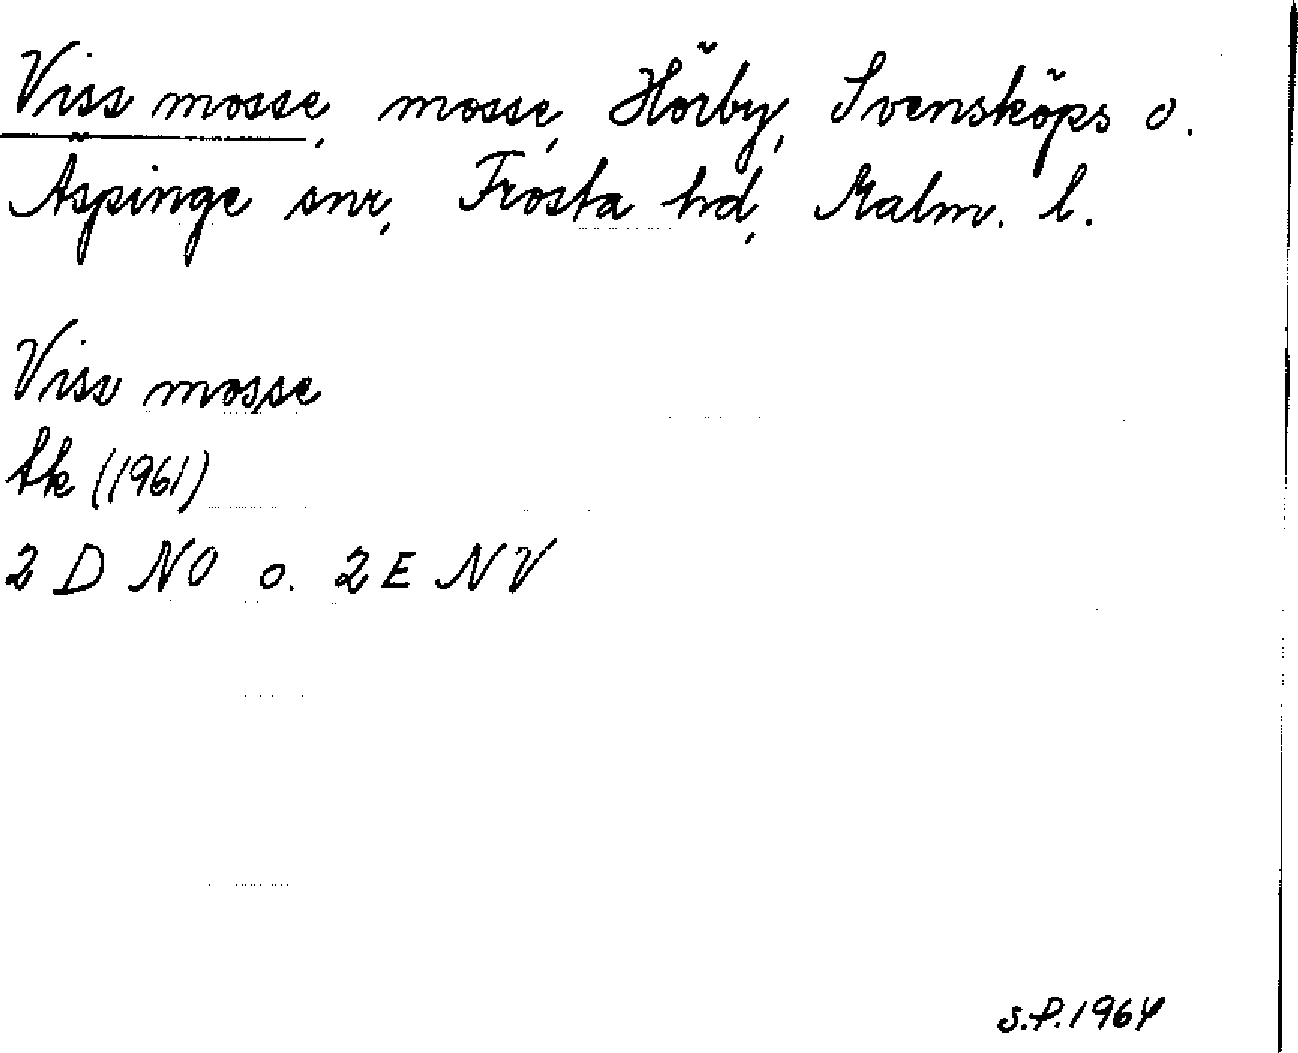 Viss mosse, mosse, Hörby, Svensköps o.
Äspinge snr, Frosta hd, Malm. l.
Viss mosse
tk (1961)
2 D NO o. 2 E NV
S.P. 1964